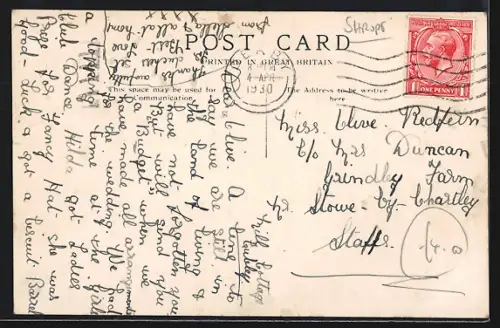 SHROPS
POST CARD
PRINTED IN GREAT BRITAIN
This space may be used for
Communication.
The Address to be written
here
4 APR
1930
ONE PENNY
Miss Olive Redfern
C/o Mrs Duncan
Grindley Farm
Stowe-by-Chartley
Staffs.
Hill Cottage
Dear Olive. A line to
say we are still in
the land of living &
have not forgotten you
But will send you
a Budget when we
have made all arrangements
for the wedding. We had
a time at the Gala
Olive Dance Hilda got Ladies
Prize for Fancy Hat she was
good-luck & got a biscuit Barrel
thanks awfully
Best
Love to
all at home
from Hilda
xxxxx